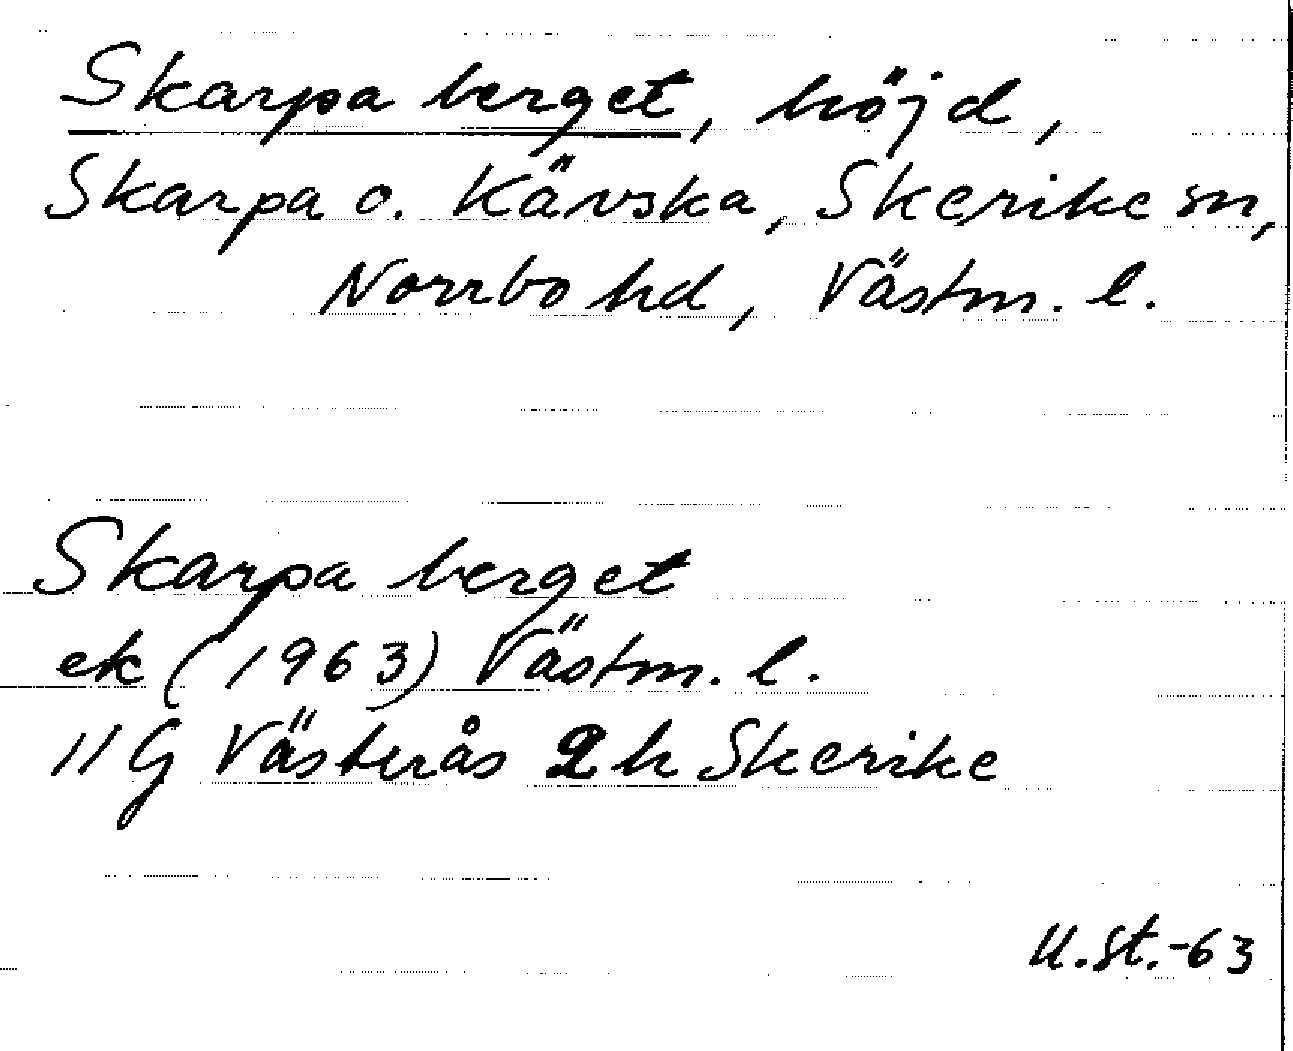 Skarpa berget, höjd,
Skarpa o. Kävska, Skerike sn,
Norrbo hd, Västm. l.
Skarpa berget
ek (1963) Västm. l.
11G Västerås 2h Skerike
U.St.-63